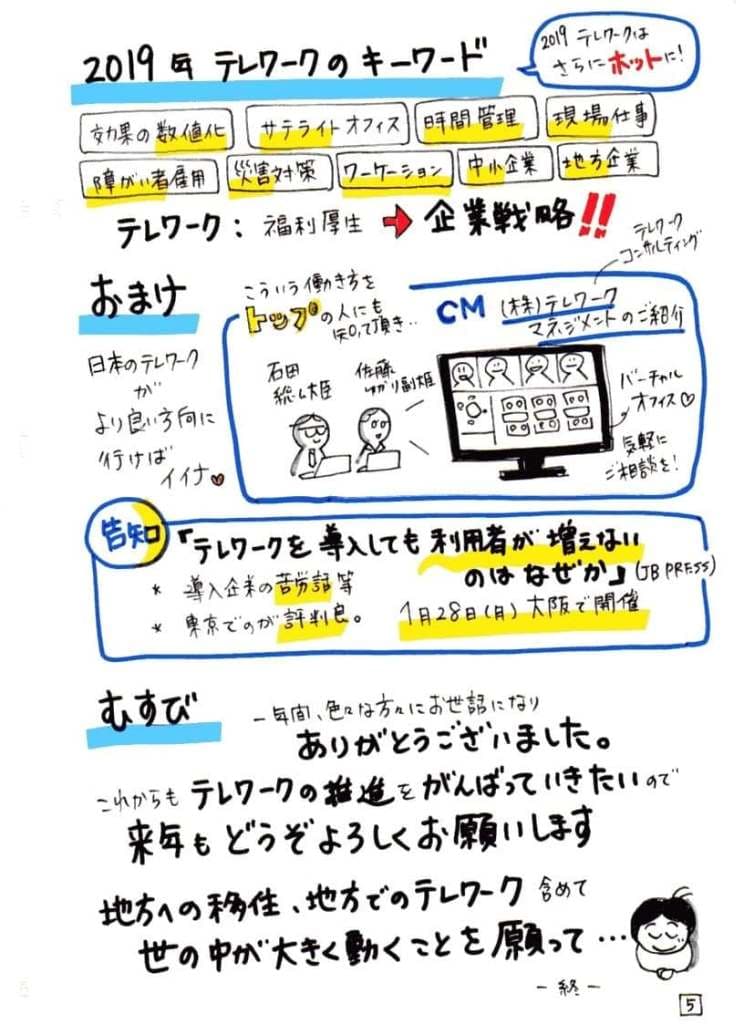 2019年 テレワークのキーワード
2019 テレワークは
さらにホットに!
効果の数値化 サテライトオフィス 時間管理 現場仕事
障がい者雇用 災害対策 ワーケーション 中小企業 地方企業
テレワーク: 福利厚生 ➡ 企業戦略!!
おまけ
日本のテレワーク
が
より良い方向に
行けば
イイナ
こういう働き方を
トップの人にも
知って頂き‥
CM (株)テレワーク
マネジメントのご紹介
テレワーク
コンサルティング
石田
総ム大臣
佐藤
ゆかり副大臣
バーチャル
オフィス♡
気軽に
ご相談を!
告知
『テレワークを導入しても利用者が増えない
のはなぜか』(JB PRESS)
* 導入企業の苦労話等
* 東京でのが評判良。
1月28日(月)大阪で開催
むすび
一年間、色々な方々にお世話になり
ありがとうございました。
これからも テレワークの推進をがんばっていきたいので
来年もどうぞよろしくお願いします
地方への移住、地方でのテレワーク 含めて
世の中が大きく動くことを願って…
-終-
5